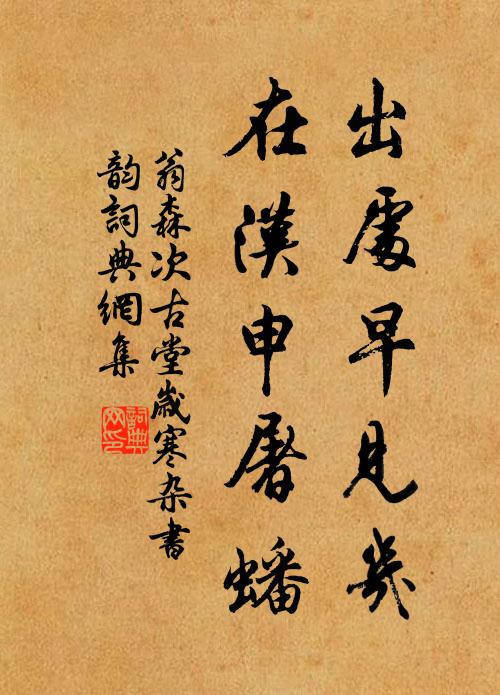 出處早見幾
在漢申屠蟠
翁森次古堂歲寒杂書
韵詞典網集
詞典
网印